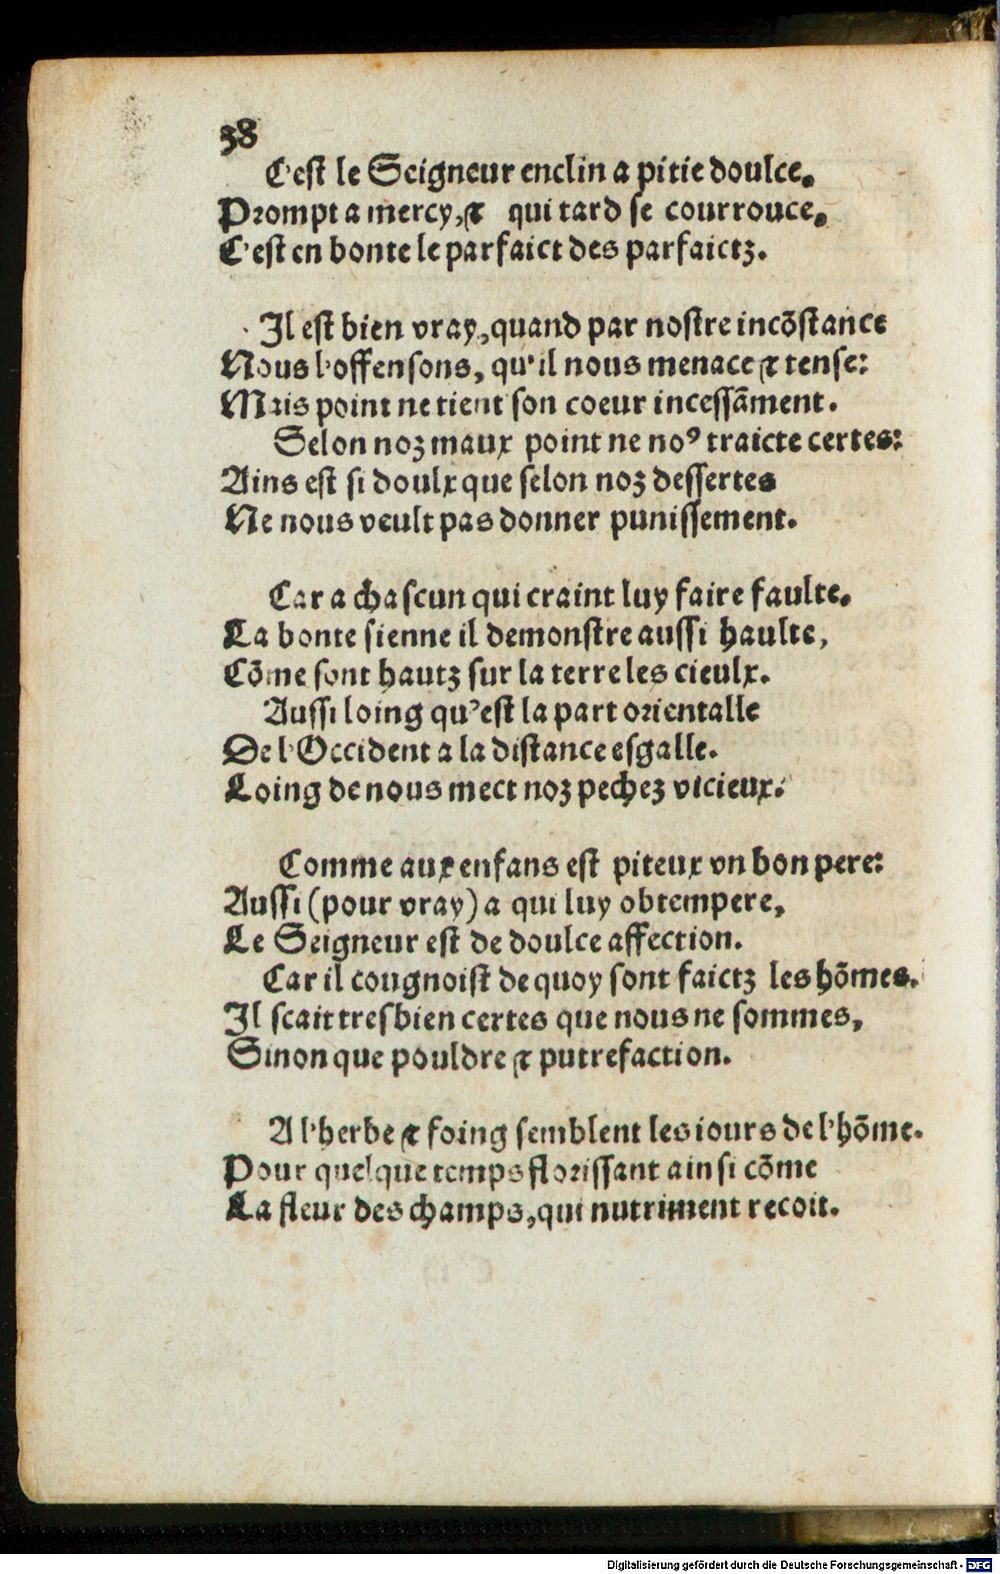 38
C'est le Seigneur enclin a pitie doulce.
Prompt a mercy, & qui tard se courrouce.
C'est en bonte le parfaict des parfaictz.
Il est bien vray, quand par nostre incõstance
Nous l'offensons, qu'il nous menace & tense:
Mais point ne tient son coeur incessãment.
Selon noz maux point ne noꝰ traicte certes:
Ains est si doulx que selon noz dessertes
Ne nous veult pas donner punissement.
Car a chascun qui craint luy faire faulte.
La bonte sienne il demonstre aussi haulte,
Cõme sont hautz sur la terre les cieulx.
Aussi loing qu'est la part orientalle
De l'Occident a la distance esgalle.
Loing de nous mect noz pechez vicieux.
Comme aux enfans est piteux vn bon pere:
Aussi (pour vray) a qui luy obtempere,
Le Seigneur est de doulce affection.
Car il congnoist de quoy sont faictz les hõmes.
Il scait tresbien certes que nous ne sommes,
Sinon que pouldre & putrefaction.
A l'herbe & foing semblent les iours de l'hõme.
Pour quelque temps florissant ainsi cõme
La fleur des champs, qui nutriment recoit.
Digitalisierung gefördert durch die Deutsche Forschungsgemeinschaft - DFG